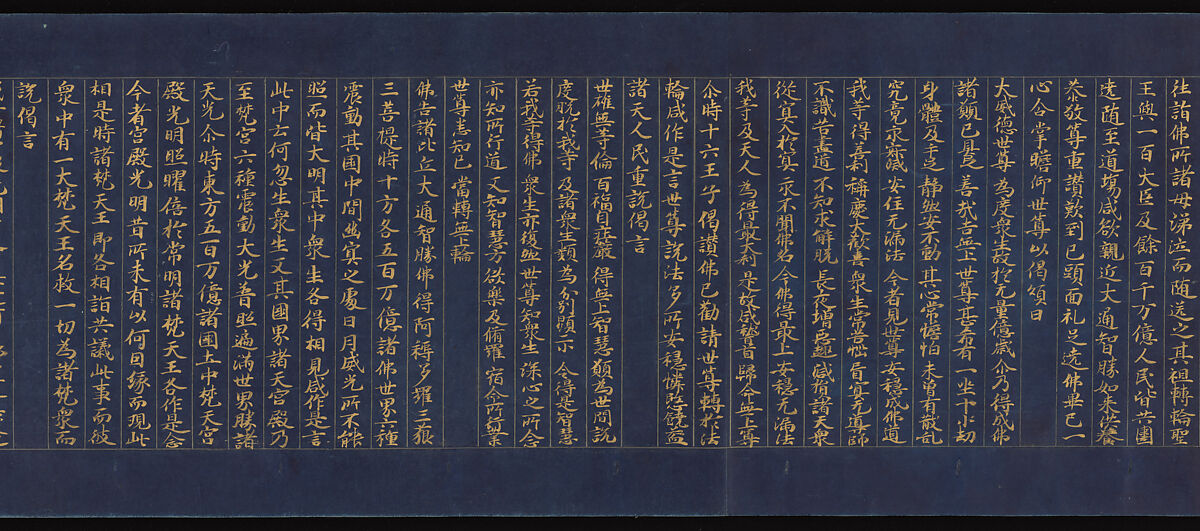 往詣佛所諸母涕泣而隨送之其祖轉輪聖
王與一百大臣及餘百千万億人民皆共圍
遶隨至道場咸欲親近大通智勝如來供養
恭敬尊重讃歎到已頭面礼足遶佛畢已一
心合掌瞻仰世尊以偈頌曰
大威德世尊 為度衆生故 於无量億歳 尒乃得成佛
諸願已具足 善哉吉无上 世尊甚希有 一坐十小劫
身體及手足 静然安不動 其心常憺怕 未曾有散乱
究竟永寂滅 安住无漏法 今者見世尊 安穏成佛道
我等得善利 稱慶大歡喜 衆生常苦惱 盲冥无導師
不識苦盡道 不知求解脱 長夜増惡趣 減損諸天衆
從冥入於冥 永不聞佛名 今佛得最上 安穏无漏法
我等及天人 為得最大利 是故咸稽首 歸命无上尊
尒時十六王子偈讃佛已勸請世尊轉於法
輪咸作是言世尊説法多所安穏憐愍饒益
諸天人民重説偈言
世雄无等倫 百福自莊嚴 得无上智慧 願為世間説
度脱於我等 及諸衆生類 為分別顯示 令得是智慧
若我等得佛 衆生亦復然 世尊知衆生 深心之所念
亦知所行道 又知智慧力 欲樂及脩福 宿命所行業
世尊悉知已 當轉无上輪
佛告諸比丘大通智勝佛得阿耨多羅三藐
三菩提時十方各五百万億諸佛世界六種
震動其國中間幽冥之處日月威光所不能
照而皆大明其中衆生各得相見咸作是言
此中云何忽生衆生又其國界諸天宮殿乃
至梵宮六種震動大光普照遍滿世界勝諸
天光尒時東方五百万億諸國土中梵天宮
殿光明照曜倍於常明諸梵天王各作是念
今者宮殿光明昔所未有以何因縁而現此
相是時諸梵天王即各相詣共議此事而彼
衆中有一大梵天王名救一切為諸梵衆而
説偈言